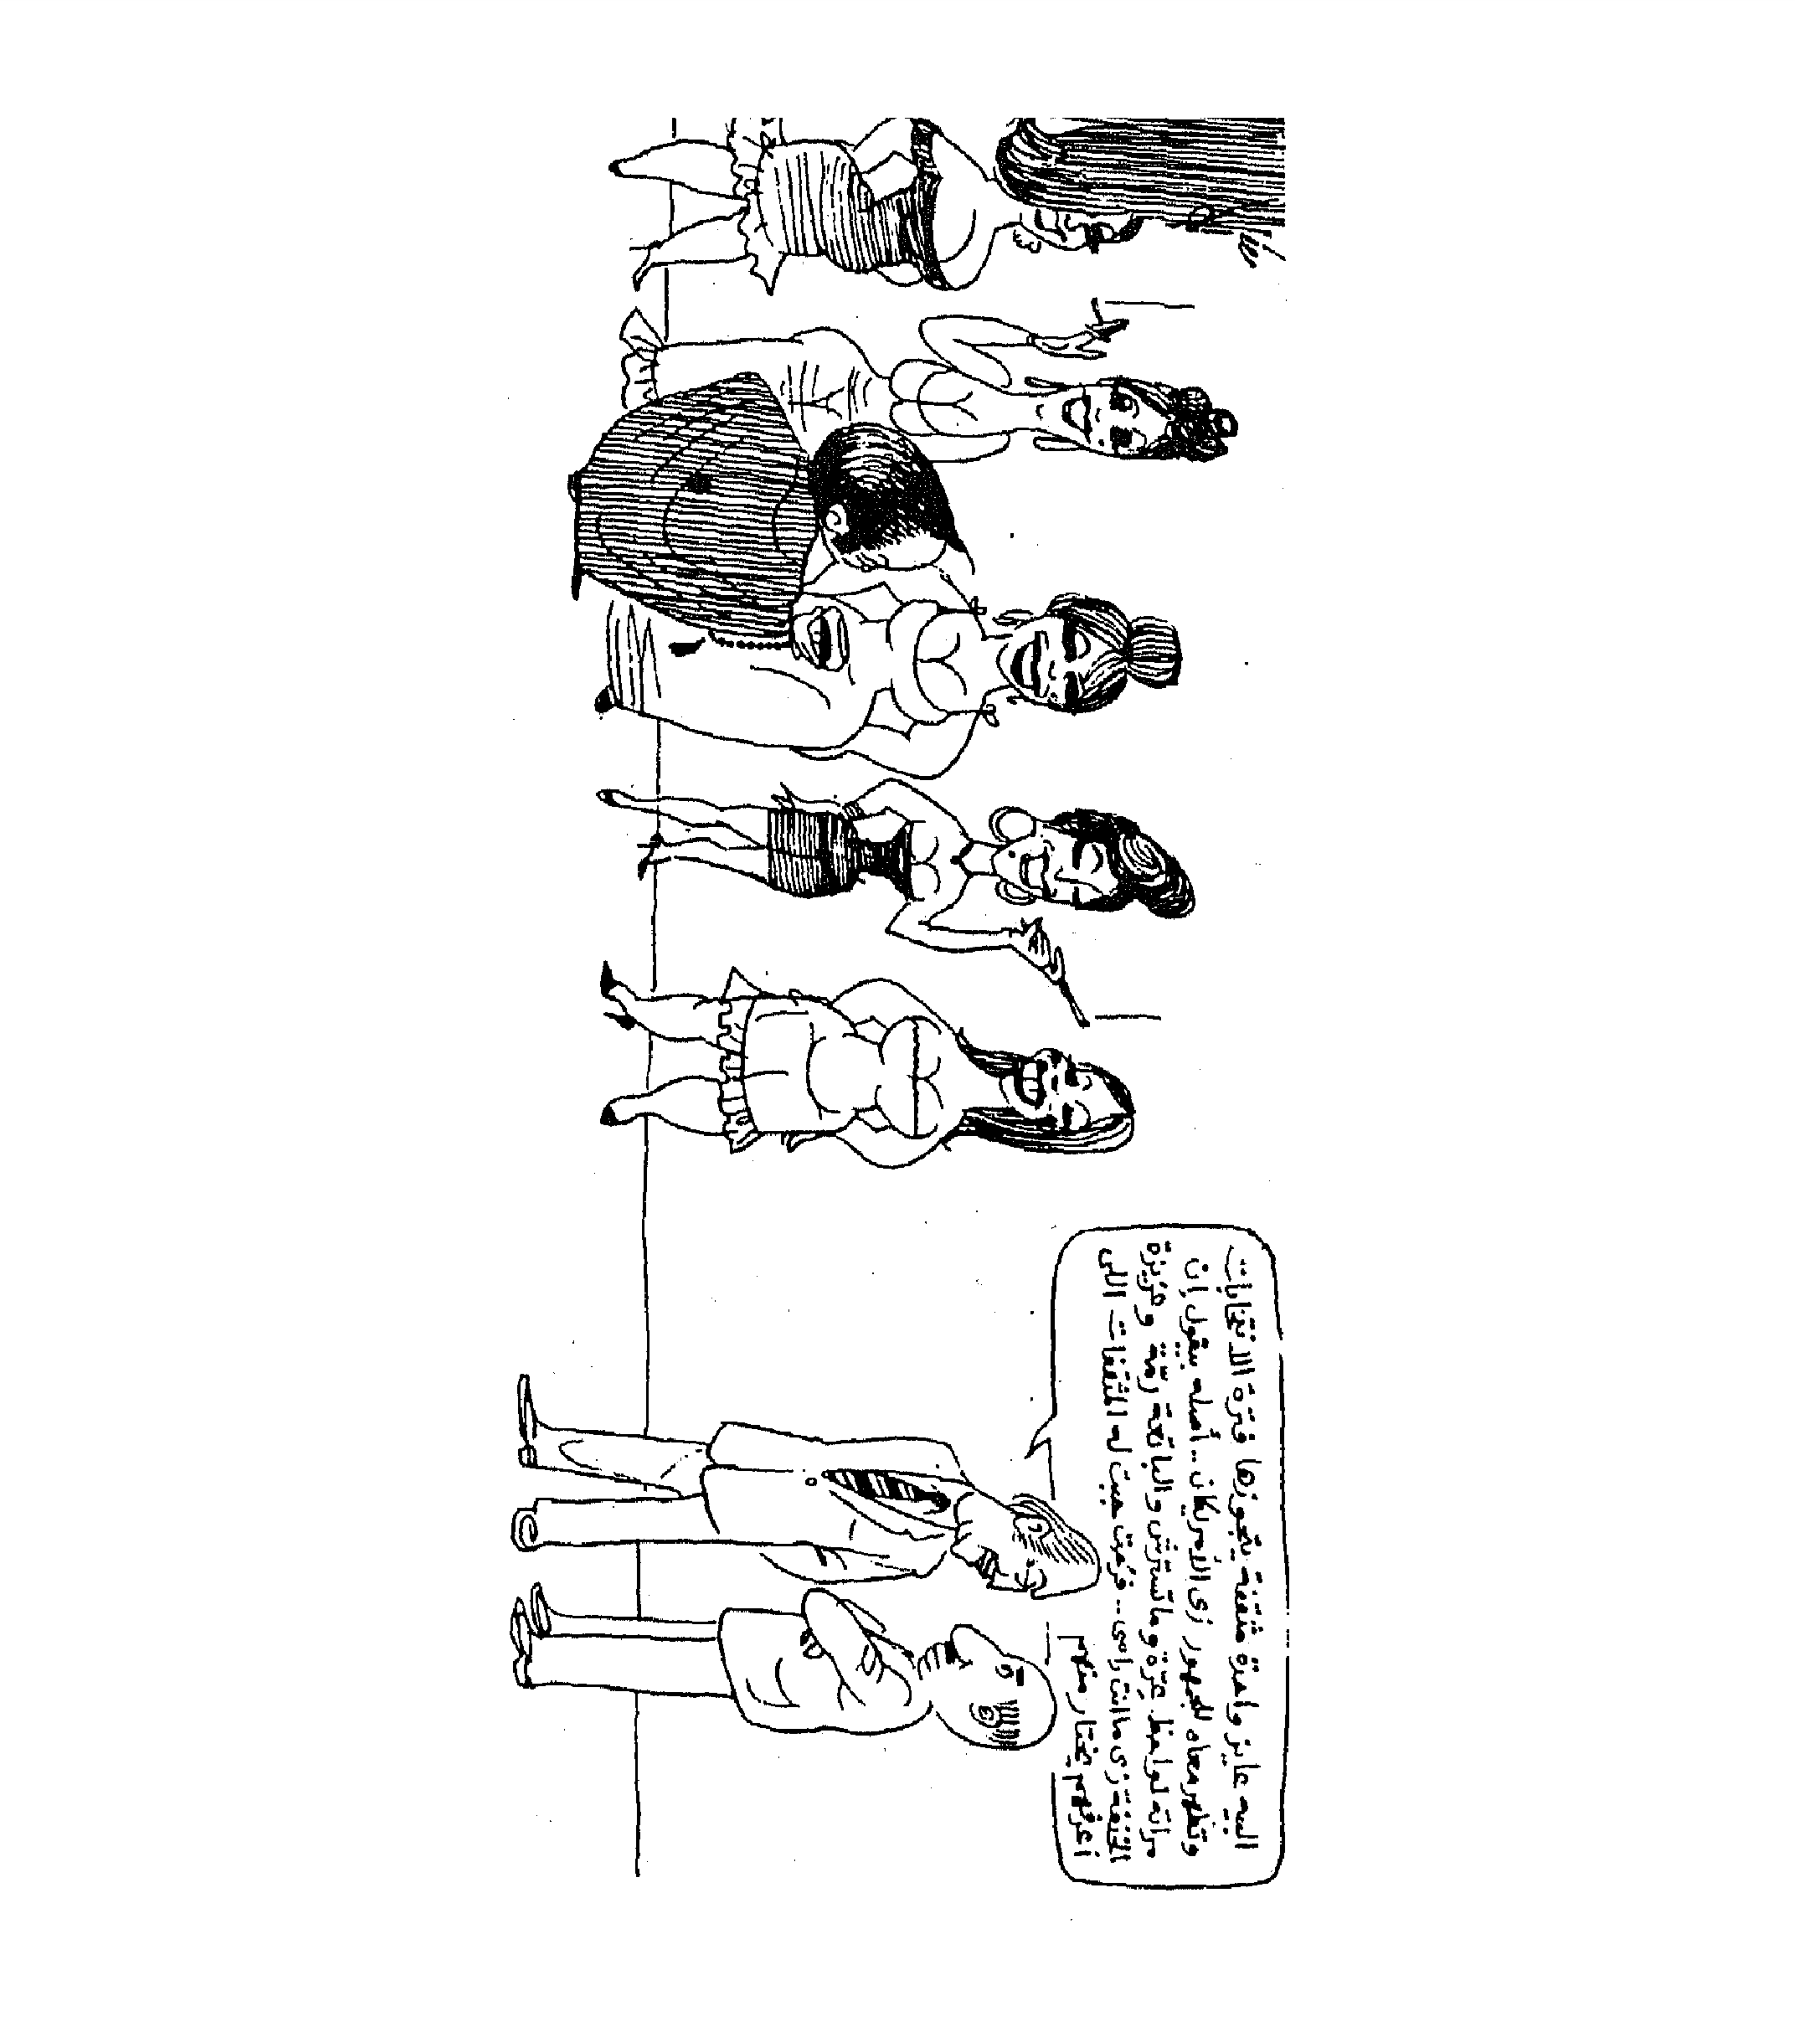 البيه عايز واحدة مثقفة يتجوزها فترة الانتخابات
وتظهر معاه للجمهور زى الأمريكان.. أصله بيقول إن
مراته لواحظ عِرّة وماتشرفش والباتعة رِمّة وعزيزة
التفه زى ماانت راسى.. فرُحت جبت له المثقفات اللى
أعرفهم يختار منهم